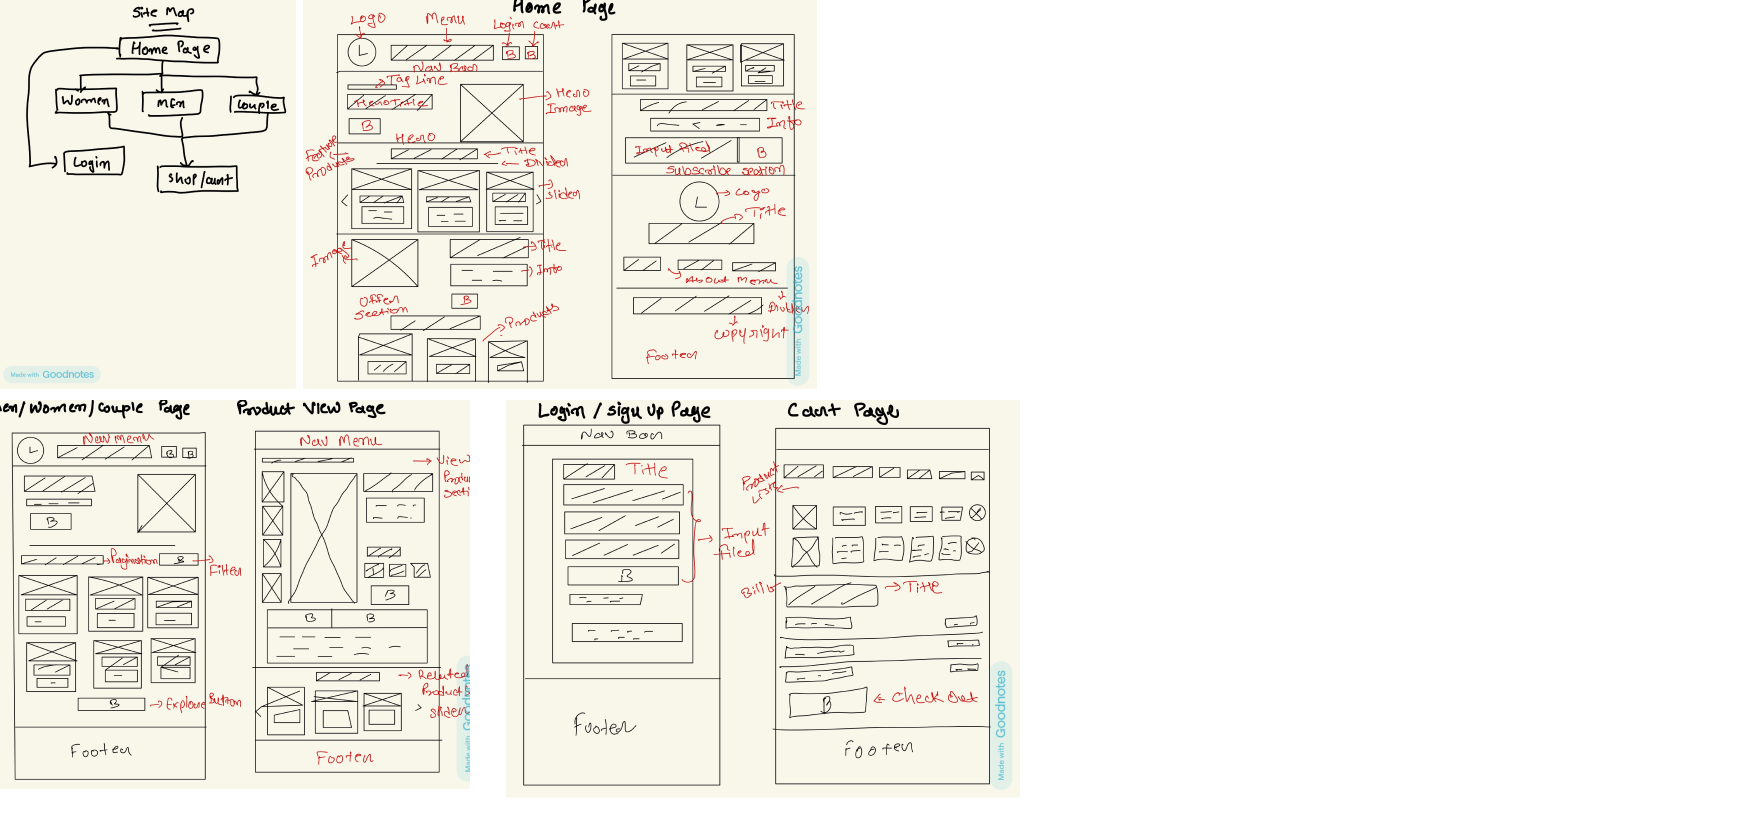 Site Map
Home Page
Women
MEn
Couple
Login
Shop/cart
Made with Goodnotes
Home Page
Logo
Menu
Login cart
B
B
Nav Bar
Tag Line
Hero Title
Hero Image
B
Hero
Feature Products
Title
Divider
slider
Image
Title
Info
Offer Section
B
Products
Title
Info
Input field
B
Subscribe section
Logo
Title
About Menu
Divider
Copyright
Footer
Made with Goodnotes
en/Women/Couple Page
Nav menu
B
B
B
Pagination
B
Filter
B
Explore Button
Footer
Product View Page
Nav Menu
View
Produ
Secti
B
B
B
Related
Product
slider
Footer
Made with Goodnotes
Login / sign Up Page
Nav Bar
Title
Input field
B
Footer
Cart Page
Product List
Bill
Title
B
Check Out
Footer
Made with Goodnotes